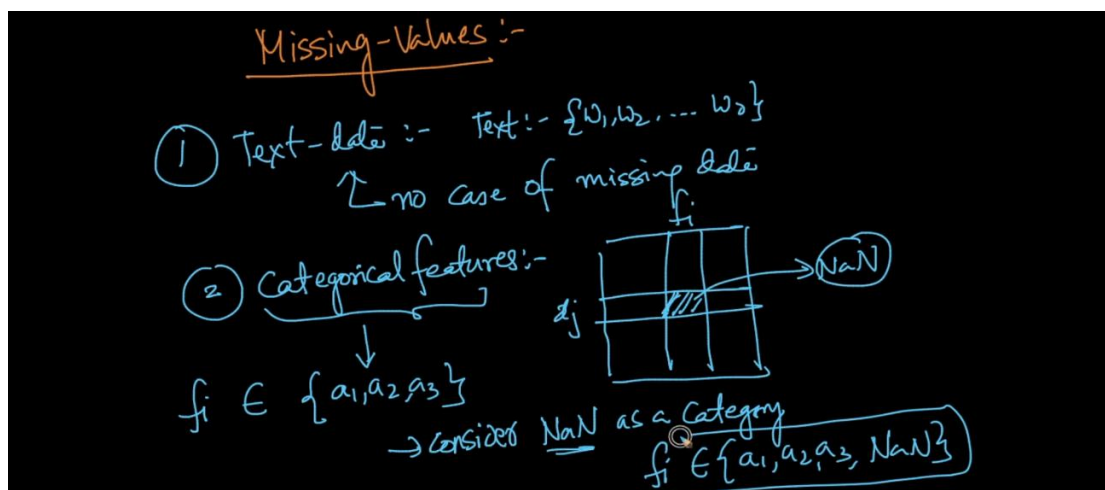 Missing-Values :-
1 Text-data :- Text :- {w1, w2, .... wd}
no case of missing data
2 Categorical features :-
fi
NaN
xj
fi ∈ {a1, a2, a3}
→ consider NaN as a category
fi ∈ {a1, a2, a3, NaN}